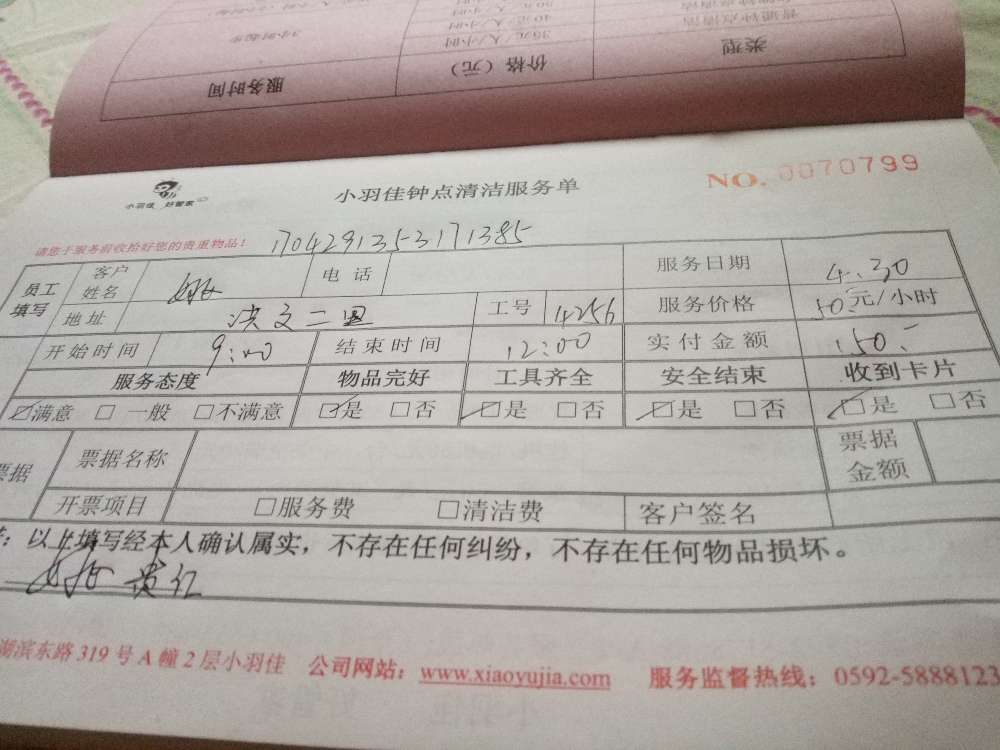 服务时间 价格（元） 类型
3小时起步 35元/人/小时 普通钟点清洁
40元/人/小时
小羽佳 好管家
小羽佳钟点清洁服务单
NO. 0070799
请您于服务前收拾好您的贵重物品！
1704291353171385
员工填写 客户姓名 姚 电话 服务日期 4.30
地址 洪文二里 工号 4256 服务价格 50元/小时
开始时间 9:00 结束时间 12:00 实付金额 150.-
服务态度 物品完好 工具齐全 安全结束 收到卡片
☑满意 □一般 □不满意 ☑是 □否 ☑是 □否 ☑是 □否 ☑是 □否
票据 票据名称 票据金额
开票项目 □服务费 □清洁费 客户签名
：以上填写经本人确认属实，不存在任何纠纷，不存在任何物品损坏。
湖滨东路 319 号 A 幢 2 层小羽佳 公司网站：www.xiaoyujia.com 服务监督热线：0592-5888123